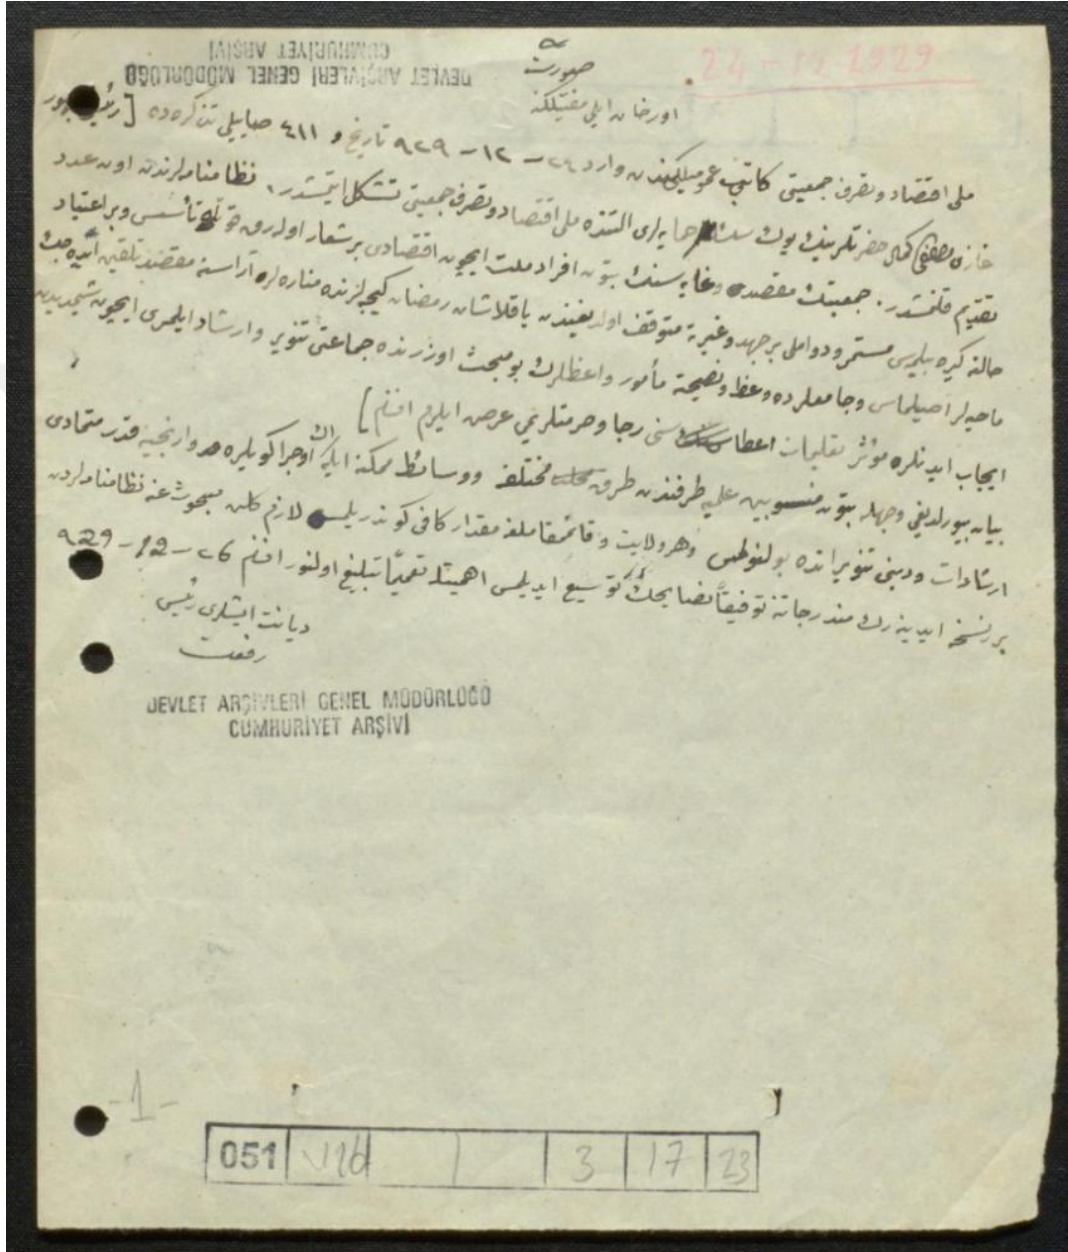 DEVLET ARŞİVLERİ GENEL MÜDÜRLÜĞÜ
CUMHURİYET ARŞİVİ
24-12-1929
صورت
اورخان ایلی مفتیلكنه
ملی اقتصاد و تصرف جمعیتی كاتب عمومیلكندن وارد ٢٤ – ١٢ – ٩٢٩ تاریخ و ٤١١ صاییلی تذكره ده [ رئیس جمهور
غازی مصطفی كمال حضرتلرینك یوك سك حمایه لری آلتنده ملی اقتصاد و تصرف جمعیتی تشكل ایتمشدر. نظامنامه لرندن اون عدد
تقدیم قلنمشدر. جمعیتك مقصد و غایه سنك بتون افراد ملت ایچون اقتصادی بر شعار اوله رق تأسس و بر اعتیاد
حالنه كیره بیلمسی مستمر و دواملی بر جهد و غیرته متوقف اولدیغندن یاقلاشان رمضان كیجه لرنده مناره لر آراسنه مقصد تلقین ایده جك
ماحیه لر آصیلماسی و جامعلرده وعظ و نصیحته مأمور واعظلرك بو مبحث اوزرنده جماعتی تنویر و ارشاد ایلمسی ایچون شیمدیدن
ایجاب ایدنلره مؤثر تعلیمات اعطاسنی رجا و حرمتلریمی عرض ایلرم افندم ]
بیان بیورلدیغی وجهله بتون منسوبین علمیه طرفندن طرق مختلفه و وسائط ممكنه ایله اك اوجرا كویلره وارنجیه قدر متمادی
ارشادات و دینی تنویراتده بولنولمسی و هر ولایت و قائمقاملغه مقدار كافی كوندریلمسی لازم كلن مبحوث عنه نظامنامه لردن
بر نسخه ایدینه رك مندرجاتنه توفیقاً نصایحك توسیع ایدیلمسی اهمیتله تعمیماً تبلیغ اولنور افندم ٢6 – 12 – ٩29
دیانت ایشلری رئیسی
رفعت
DEVLET ARŞİVLERİ GENEL MÜDÜRLÜĞÜ
CUMHURİYET ARŞİVİ
-1-
051 V26 3 17 23